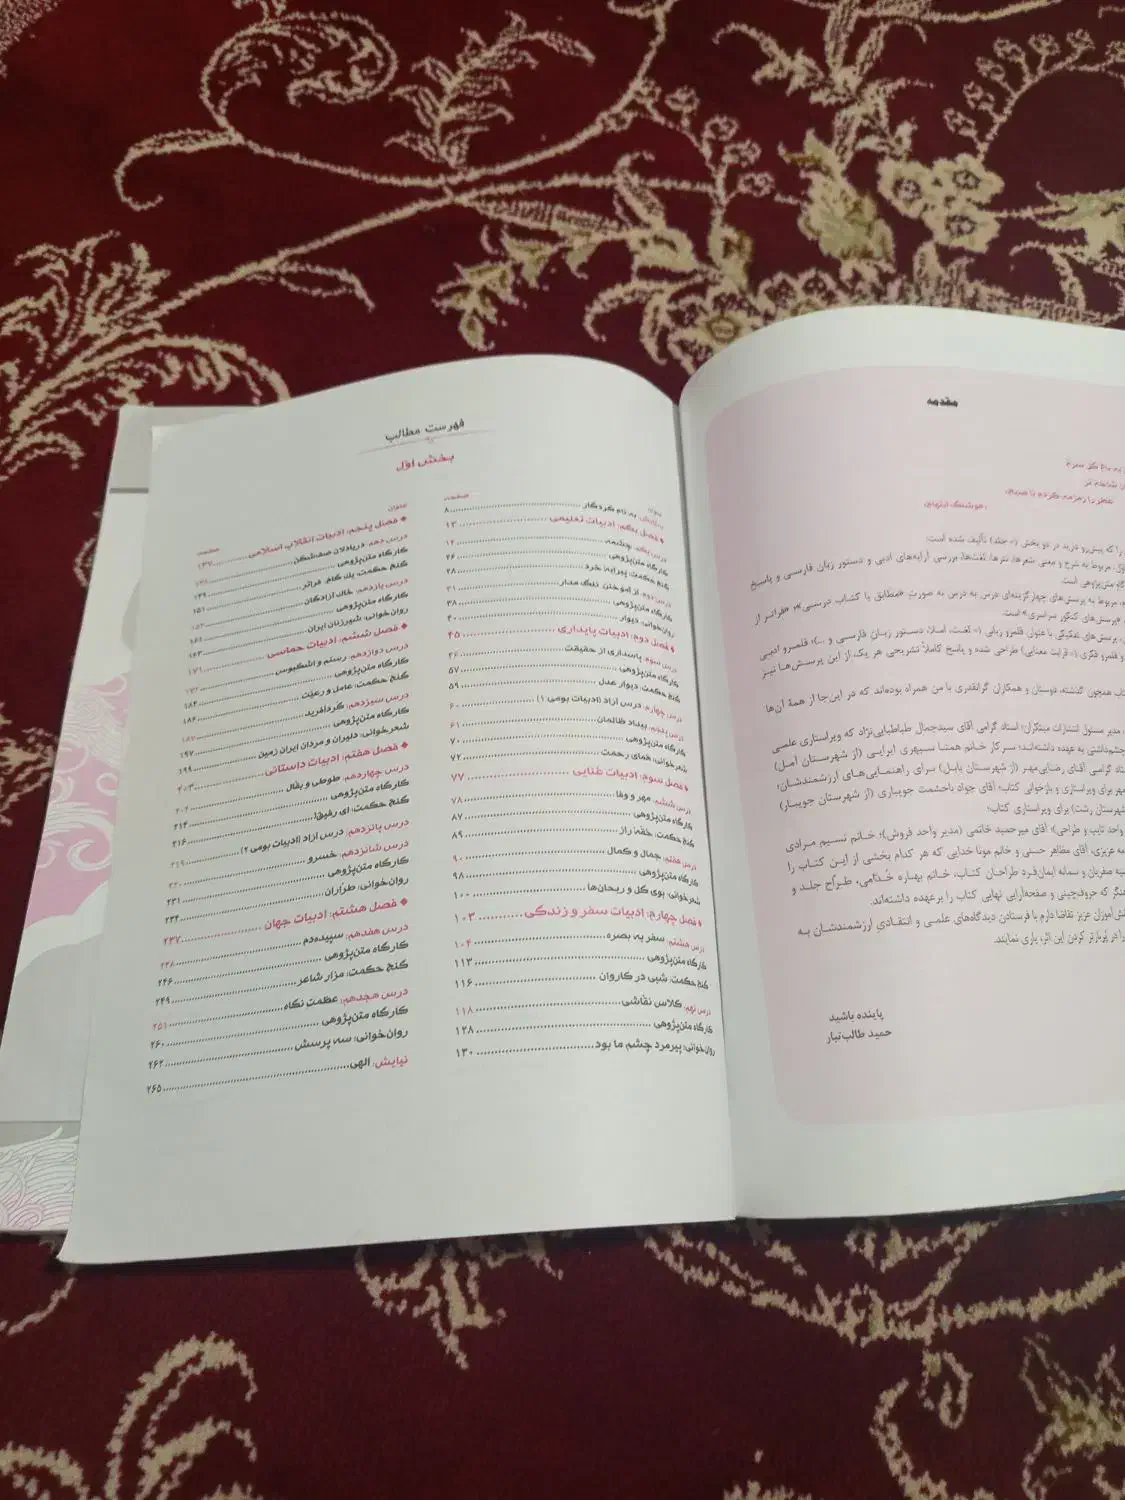 مقدمه
هوشنگ ابتهاج
را که پیش‌رو دارید در دو بخش (۲ جلد) تألیف شده است:
اول، مربوط به شرح و معنی شعرها، نثرها، لغت‌ها، بررسی آرایه‌های ادبی و دستور زبان فارسی و پاسخ
متن‌پژوهی است.
مربوط به پرسش‌های چهارگزینه‌ای درس به درس به صورت «مطابق با کتاب درسی»، «فراتر از
«پرسش‌های کنکور سراسری» است.
پرسش‌های تفکیکی با عنوان، قلمرو زبانی (= لغت، املا، دستور زبان فارسی و ...)، قلمرو ادبی
و قلمرو فکری (= قرابت معنایی) طراحی شده و پاسخ کاملاً تشریحی هر یک از این پرسش‌ها نیز
همچون گذشته، دوستان و همکاران گرانقدری با من همراه بوده‌اند که در این‌جا از همهٔ آن‌ها
مدیر مسئول انتشارات مبتکران؛ استاد گرامی آقای سیدجمال طباطبایی‌نژاد که ویراستاری علمی
به عهده داشته‌اند؛ سرکار خانم همتا سپهری ایرایی (از شهرستان آمل)
گرامی آقای رضایی‌مهر (از شهرستان بابل) برای راهنمایی‌های ارزشمندشان؛
برای ویراستاری و بازخوانی کتاب؛ آقای جواد باحشمت جویباری (از شهرستان جویبار)
شهرستان رشت) برای ویراستاری کتاب؛
واحد تایپ و طراحی)؛ آقای میرحمید خاتمی (مدیر واحد فروش)؛ خانم نسیم مرادی
عزیزی، آقای مظاهر حسنی و خانم مونا خدایی که هر کدام بخشی از این کتاب را
صفربان و سمانه ایمان‌فرد طراحان کتاب، خانم بهاره خُدّامی، طراح جلد و
که حروفچینی و صفحه‌آرایی نهایی کتاب را برعهده داشته‌اند.
عزیز تقاضا دارم با فرستادن دیدگاه‌های علمی و انتقادی ارزشمندشان به
را در پُربارتر کردن این اثر، یاری نمایند.
پاینده باشید
حمید طالب‌تبار
فهرست مطالب
بخش اوّل
عنوان صفحه
ستایش: به نام کردگار ۸
فصل یکم: ادبیات تعلیمی ۱۳
درس یکم: چشمه ۱۴
کارگاه متن‌پژوهی ۲۶
گنج حکمت: پیرایهٔ خرد ۲۸
درس دوم: از آموختن، ننگ مدار ۳۱
کارگاه متن‌پژوهی ۳۸
روان‌خوانی: دیوار ۴۰
فصل دوم: ادبیات پایداری ۴۵
درس سوم: پاسداری از حقیقت ۴۶
کارگاه متن‌پژوهی ۵۷
گنج حکمت: دیوار عدل ۵۹
درس چهارم: درس آزاد (ادبیات بومی ۱) ۶۰
درس پنجم: بیداد ظالمان ۶۱
کارگاه متن‌پژوهی ۷۰
شعرخوانی: همای رحمت ۷۲
فصل سوم: ادبیات غنایی ۷۷
درس ششم: مهر و وفا ۷۸
کارگاه متن‌پژوهی ۸۷
گنج حکمت: حُقّهٔ راز ۸۹
درس هفتم: جمال و کمال ۹۰
کارگاه متن‌پژوهی ۹۸
شعرخوانی: بوی گل و ریحان‌ها ۱۰۰
فصل چهارم: ادبیات سفر و زندگی ۱۰۳
درس هشتم: سفر به بصره ۱۰۴
کارگاه متن‌پژوهی ۱۱۳
گنج حکمت: شبی در کاروان ۱۱۶
درس نهم: کلاس نقّاشی ۱۱۸
کارگاه متن‌پژوهی ۱۲۸
روان‌خوانی: پیرمرد چشم ما بود ۱۳۰
عنوان صفحه
فصل پنجم: ادبیات انقلاب اسلامی ۱۳۷
درس دهم: دریادلان صف‌شکن ۱۳۸
کارگاه متن‌پژوهی ۱۴۹
گنج حکمت: یک گام، فراتر ۱۵۱
درس یازدهم: خاک آزادگان ۱۵۲
کارگاه متن‌پژوهی ۱۶۱
روان‌خوانی: شیرزنان ایران ۱۶۳
فصل ششم: ادبیات حماسی ۱۷۱
درس دوازدهم: رستم و اشکبوس ۱۷۲
کارگاه متن‌پژوهی ۱۸۴
گنج حکمت: عامل و رعیّت ۱۸۶
درس سیزدهم: گردآفرید ۱۸۷
کارگاه متن‌پژوهی ۱۹۷
شعرخوانی: دلیران و مردان ایران زمین ۱۹۹
فصل هفتم: ادبیات داستانی ۲۰۳
درس چهاردهم: طوطی و بقّال ۲۰۴
کارگاه متن‌پژوهی ۲۱۴
گنج حکمت: ای رفیق! ۲۱۶
درس پانزدهم: درس آزاد (ادبیات بومی ۲) ۲۱۹
درس شانزدهم: خسرو ۲۲۰
کارگاه متن‌پژوهی ۲۳۱
روان‌خوانی: طرّاران ۲۳۴
فصل هشتم: ادبیات جهان ۲۳۷
درس هفدهم: سپیده‌دم ۲۳۸
کارگاه متن‌پژوهی ۲۴۶
گنج حکمت: مزار شاعر ۲۴۹
درس هجدهم: عظمت نگاه ۲۵۱
کارگاه متن‌پژوهی ۲۶۰
روان‌خوانی: سه پرسش ۲۶۲
نیایش: الهی ۲۶۵